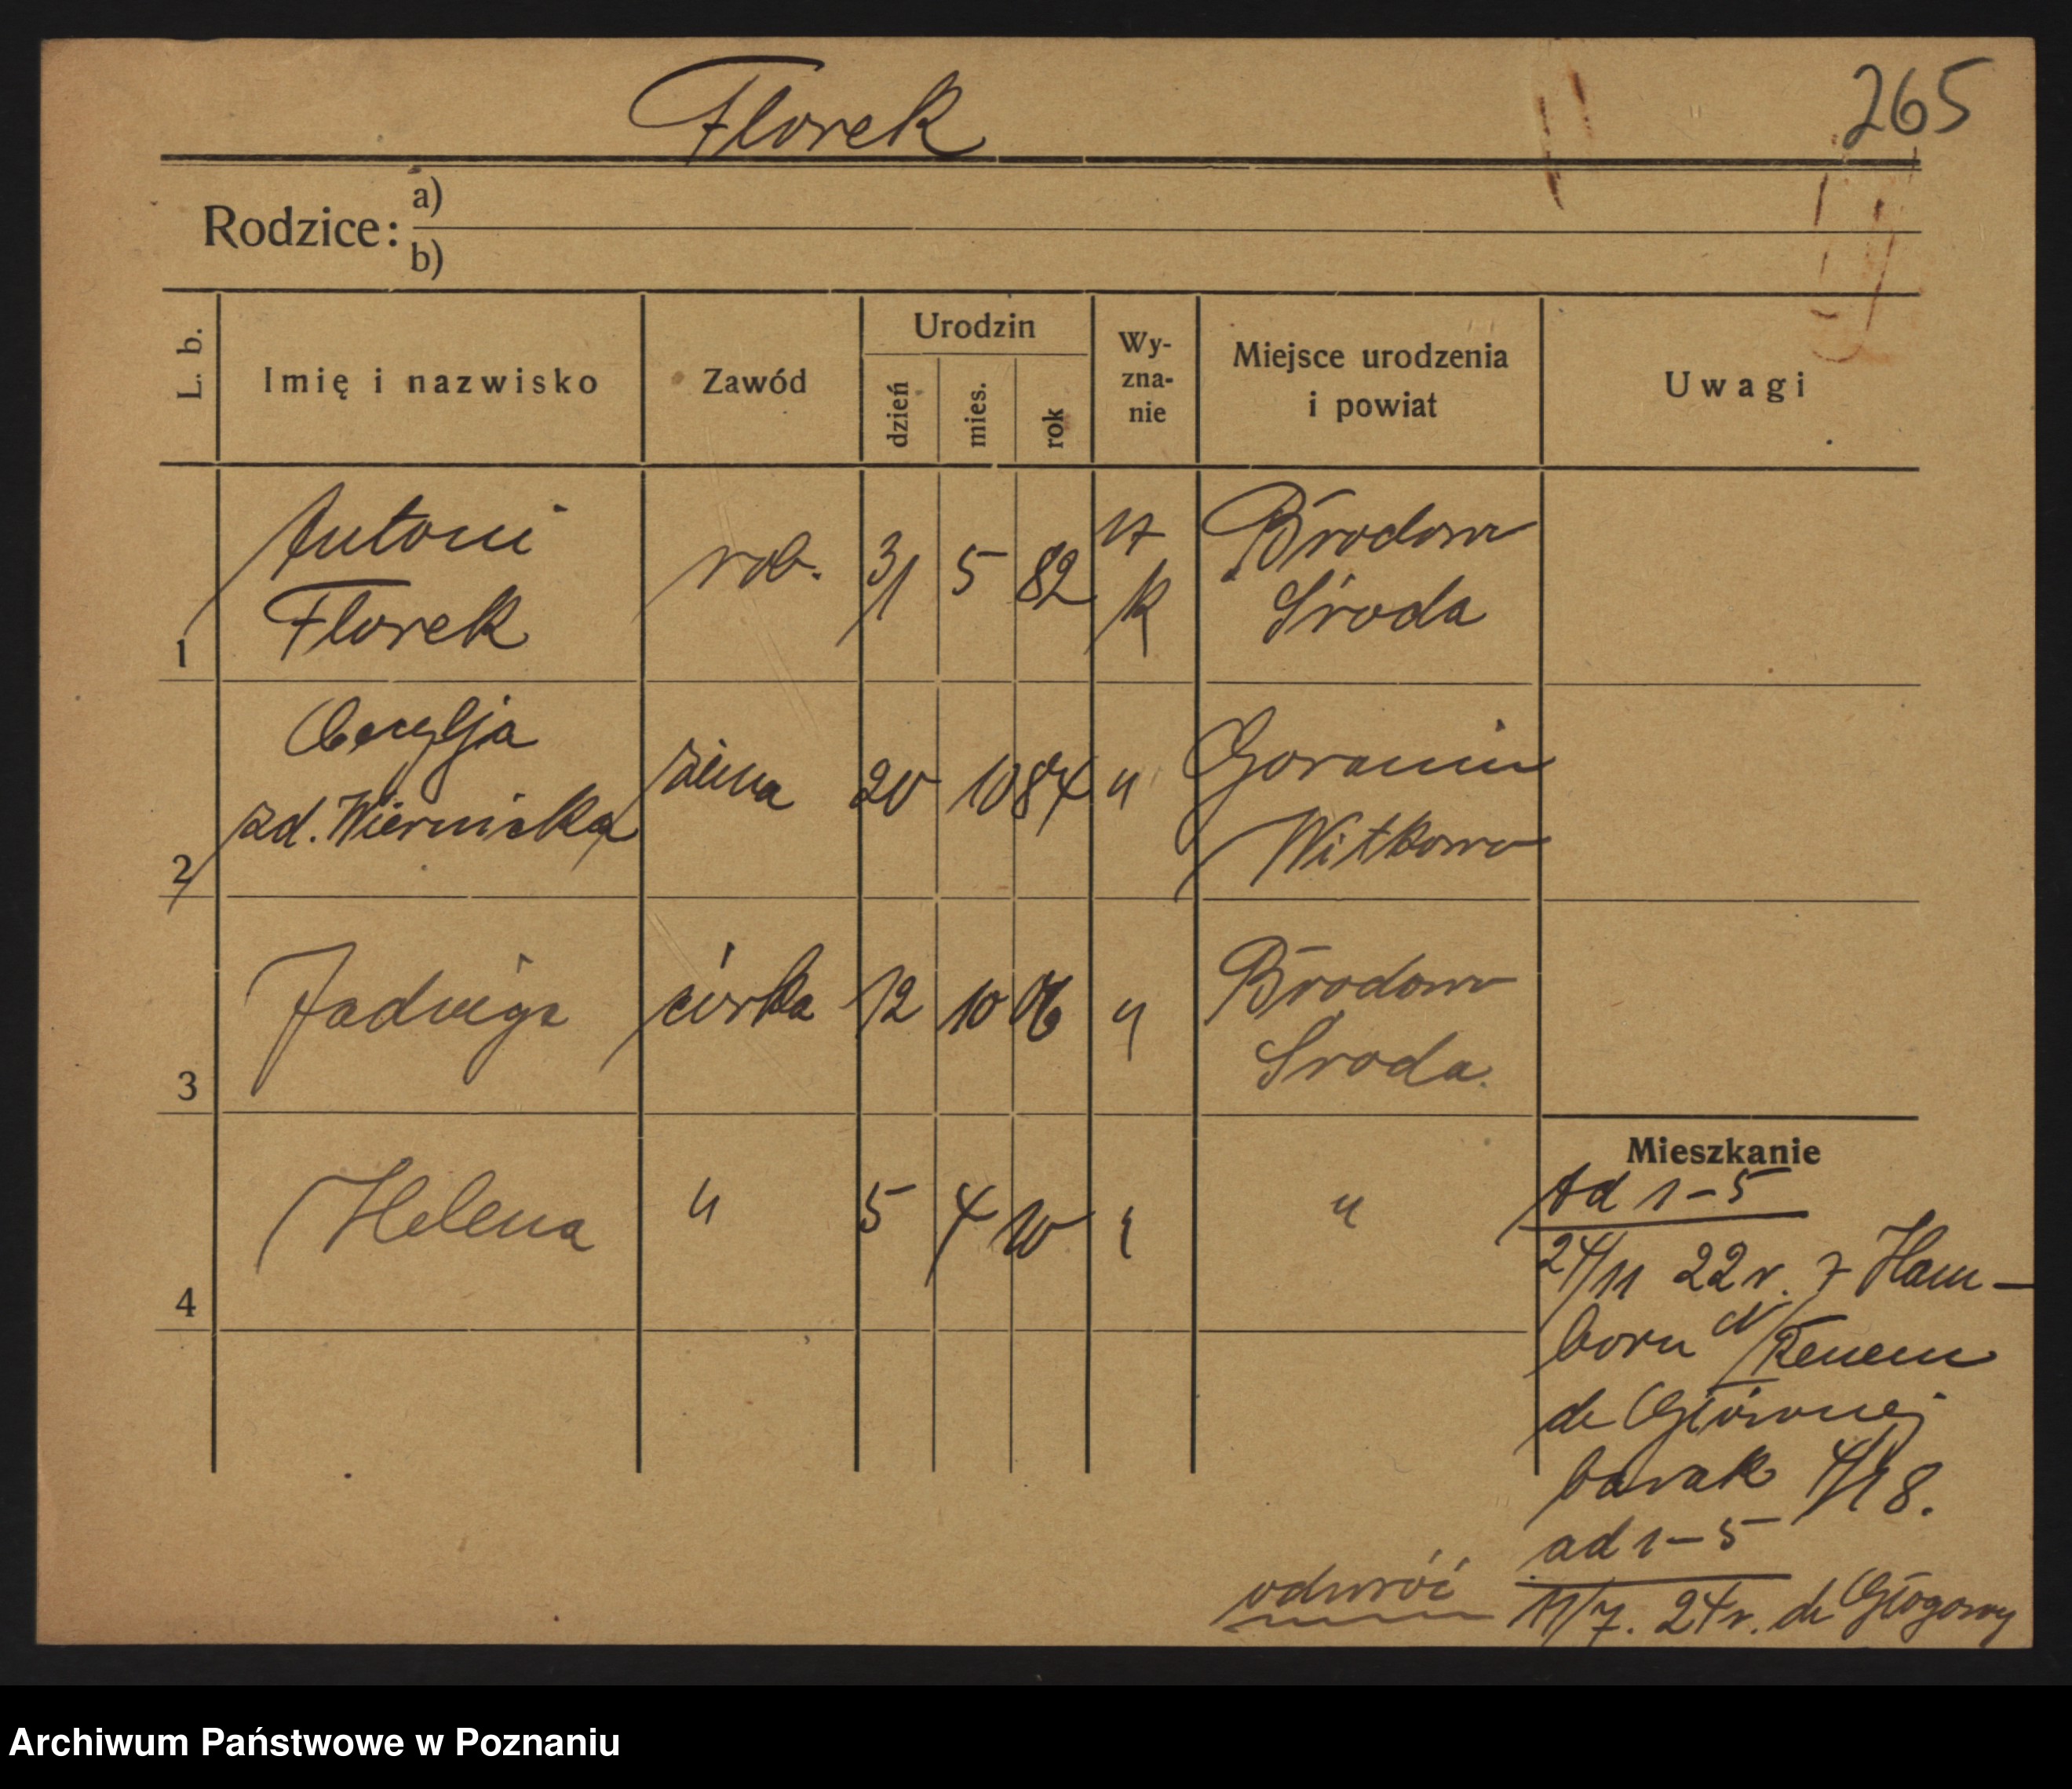 Florek
265
Rodzice:
a)
b)
L. b.
Imię i nazwisko
Zawód
Urodzin
dzień
mies.
rok
Wy-
zna-
nie
Miejsce urodzenia
i powiat
Uwagi
1
Antoni
Florek
rob.
31 5 82
k
Brodowo
Środa
2
Cecylja
zd. Wiernicka
żona
20 10 84 "
Goranin
Witkowo
3
Jadwiga
córka
12 10 06 "
Brodowo
Środa.
4
Helena
"
5 4 10 "
"
Mieszkanie
Ad 1-5
24/11 22 r. z Ham-
born n/Renem
do Głównej
barak 4/18.
ad 1-5
11/7. 24 r. do Głogowy
odwróć
Archiwum Państwowe w Poznaniu